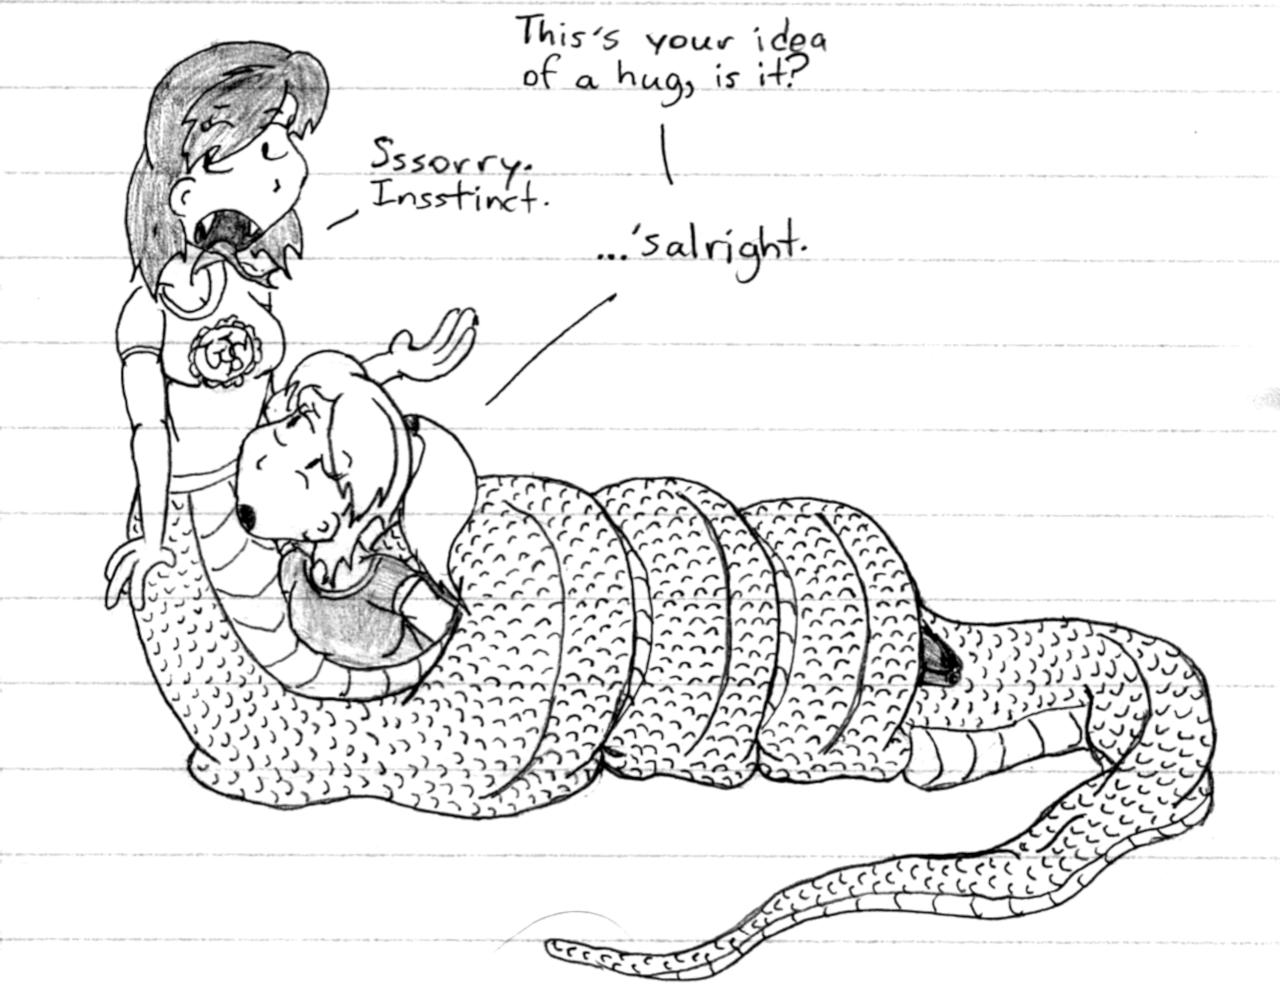 This's your idea
of a hug, is it?
Sssorry.
Insstinct.
...'salright.